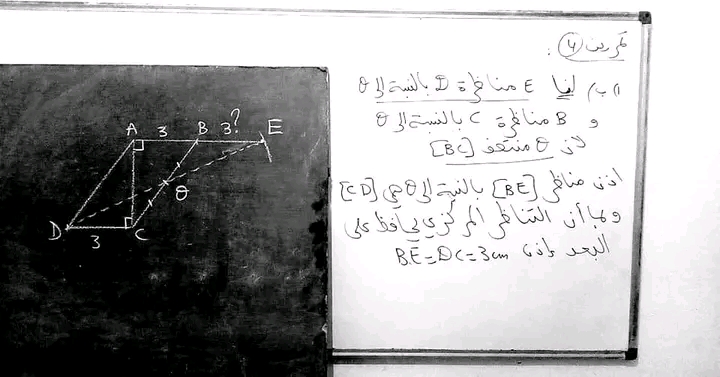 تمرين 4 :
1/ب) لدينا E مناظرة D بالنسبة إلى θ
و B مناظرة C بالنسبة إلى θ
لأن θ منتصف [BC]
اذن مناظر [BE] بالنسبة إلى θ هي [CD]
وبما أن التناظر المركزي يحافظ على
البعد فإذن BE=DC=3cm
A 3 B 3? E
θ
D 3 C